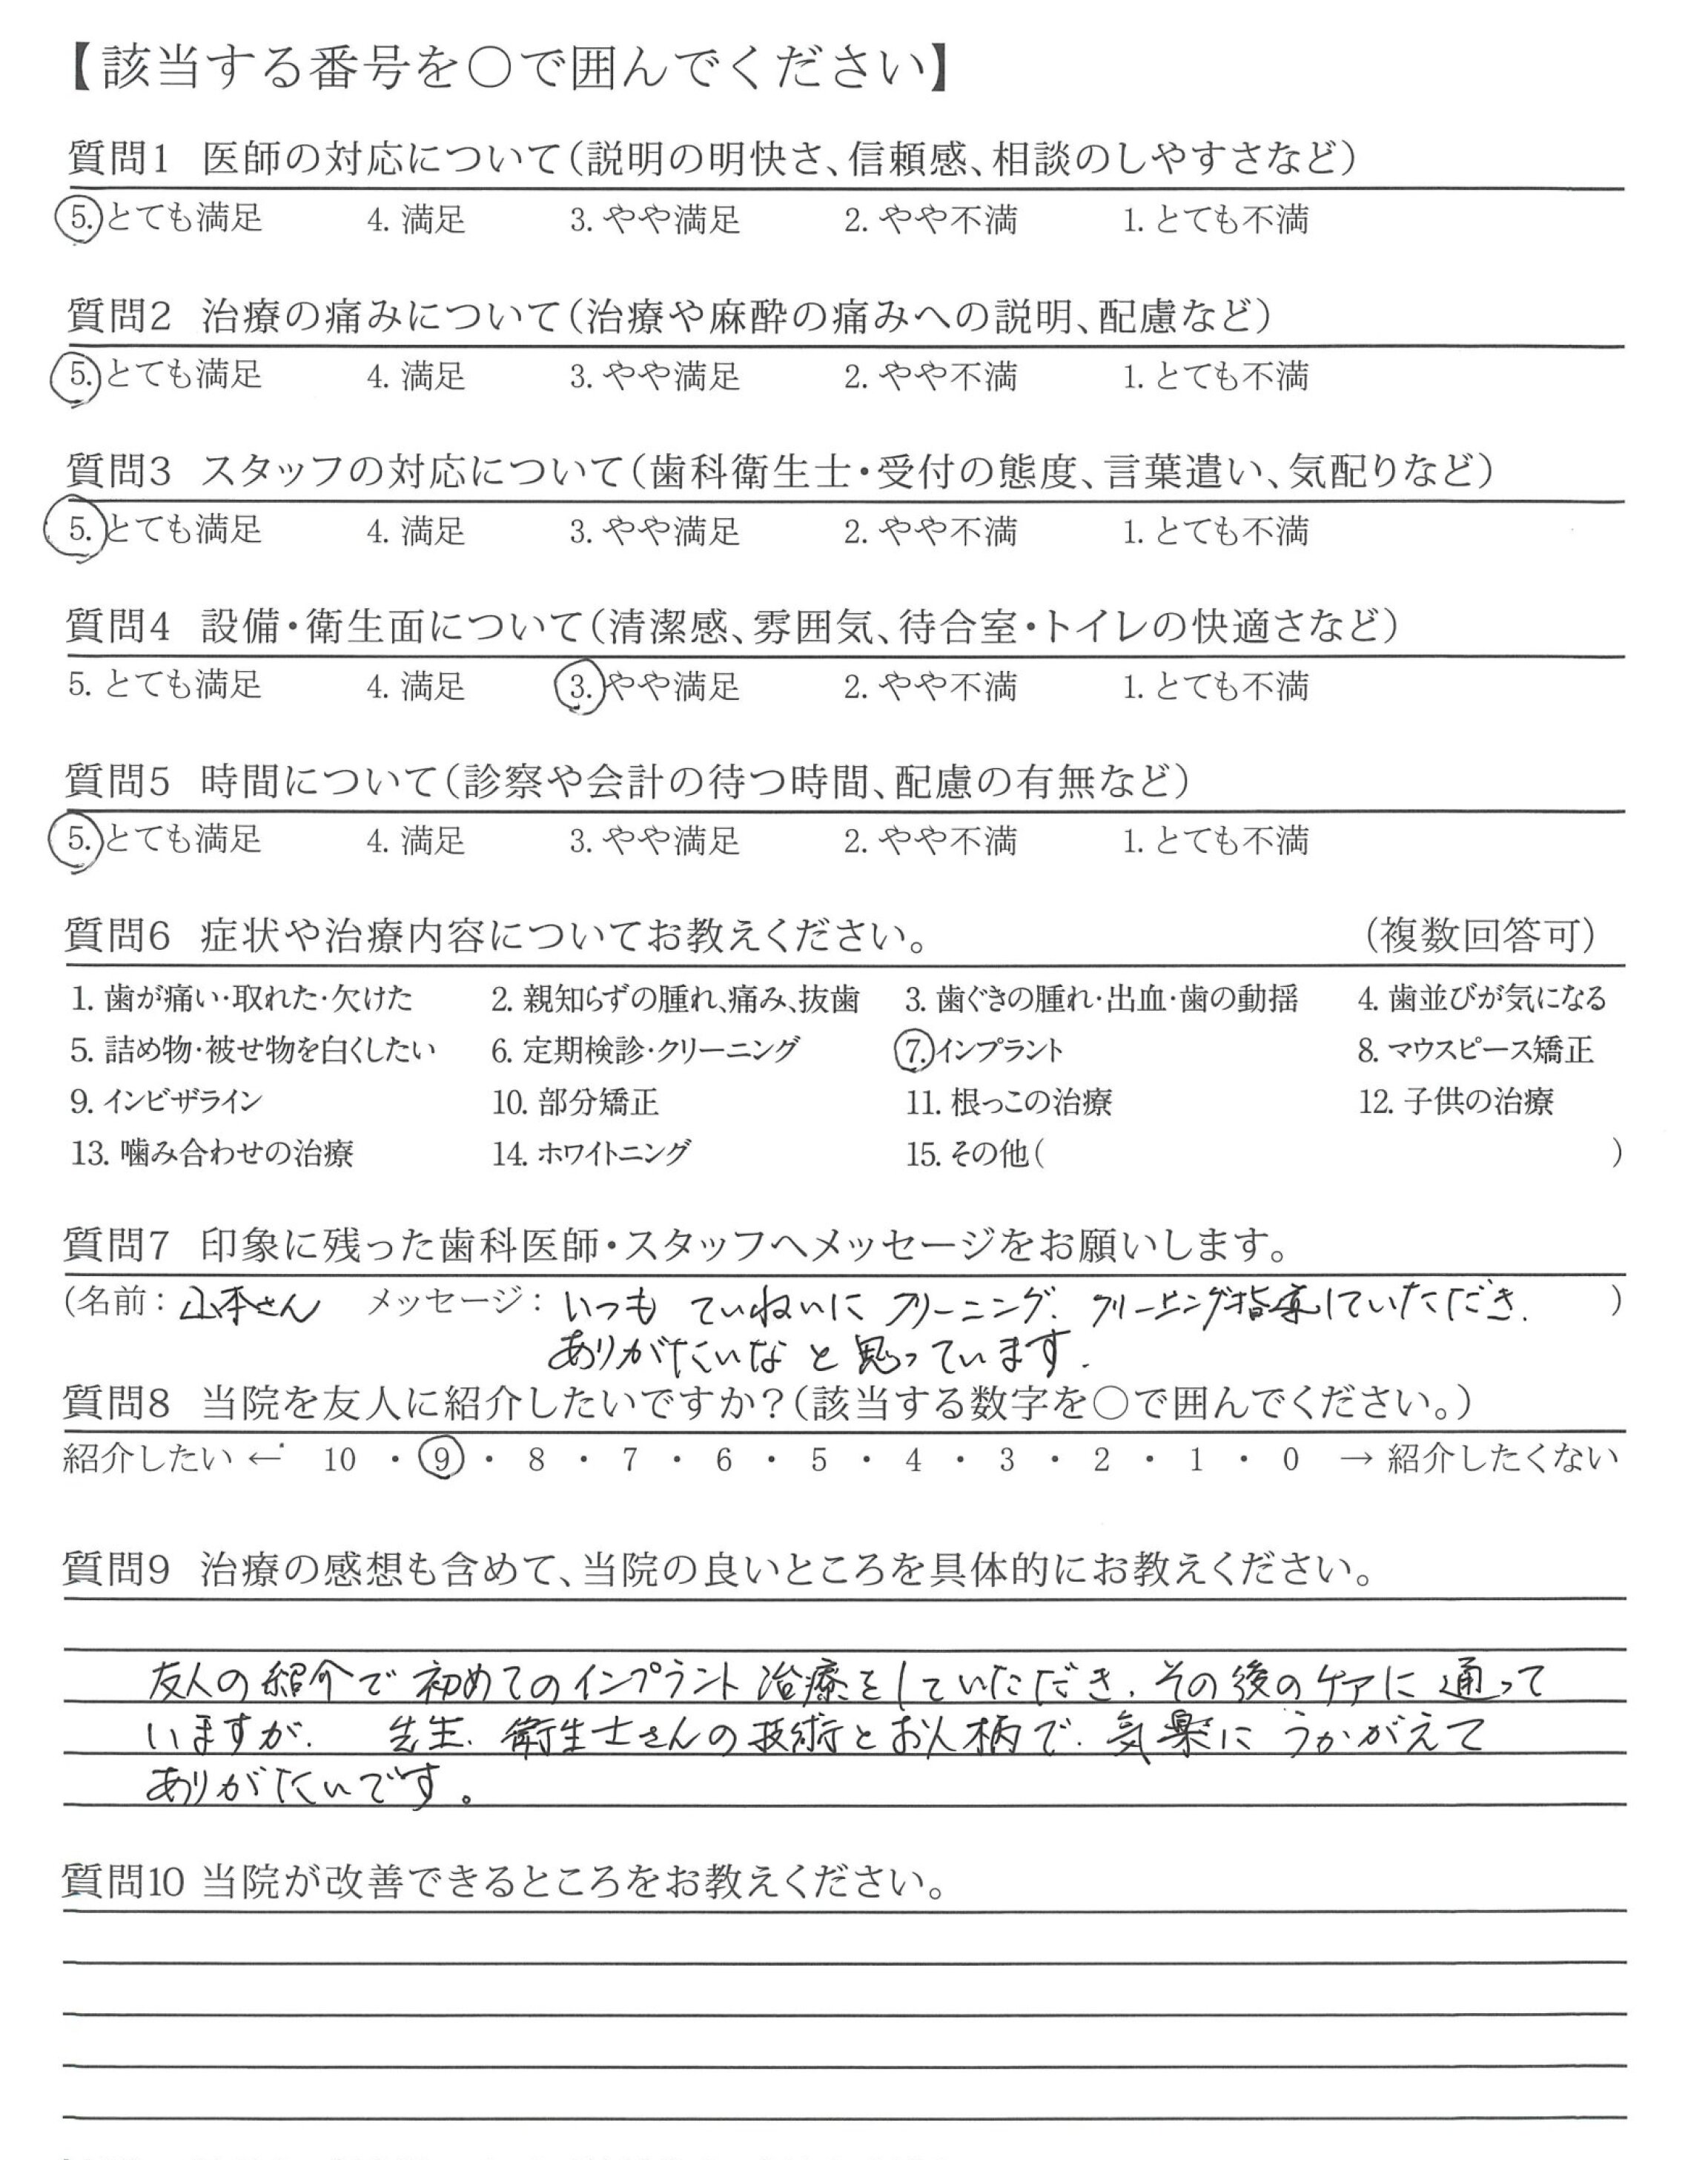 【該当する番号を○で囲んでください】
質問1 医師の対応について(説明の明快さ、信頼感、相談のしやすさなど)
5. とても満足 4. 満足 3. やや満足 2. やや不満 1. とても不満
質問2 治療の痛みについて(治療や麻酔の痛みへの説明、配慮など)
5. とても満足 4. 満足 3. やや満足 2. やや不満 1. とても不満
質問3 スタッフの対応について(歯科衛生士・受付の態度、言葉遣い、気配りなど)
5. とても満足 4. 満足 3. やや満足 2. やや不満 1. とても不満
質問4 設備・衛生面について(清潔感、雰囲気、待合室・トイレの快適さなど)
5. とても満足 4. 満足 3. やや満足 2. やや不満 1. とても不満
質問5 時間について(診察や会計の待つ時間、配慮の有無など)
5. とても満足 4. 満足 3. やや満足 2. やや不満 1. とても不満
質問6 症状や治療内容についてお教えください。 (複数回答可)
1. 歯が痛い・取れた・欠けた 2. 親知らずの腫れ、痛み、抜歯 3. 歯ぐきの腫れ・出血・歯の動揺 4. 歯並びが気になる
5. 詰め物・被せ物を白くしたい 6. 定期検診・クリーニング 7. インプラント 8. マウスピース矯正
9. インビザライン 10. 部分矯正 11. 根っこの治療 12. 子供の治療
13. 噛み合わせの治療 14. ホワイトニング 15. その他( )
質問7 印象に残った歯科医師・スタッフへメッセージをお願いします。
(名前: 山本さん メッセージ: いつも ていねいに クリーニング、クリーニング指導していただき、 )
ありがたいな と 思っています.
質問8 当院を友人に紹介したいですか?(該当する数字を○で囲んでください。)
紹介したい ← 10 ・ 9 ・ 8 ・ 7 ・ 6 ・ 5 ・ 4 ・ 3 ・ 2 ・ 1 ・ 0 → 紹介したくない
質問9 治療の感想も含めて、当院の良いところを具体的にお教えください。
友人の紹介で 初めてのインプラント 治療をしていただき、その後のケアに 通って
いますが、 先生、衛生士さんの技術とお人柄で、気楽に うかがえて
ありがたいです。
質問10 当院が改善できるところをお教えください。